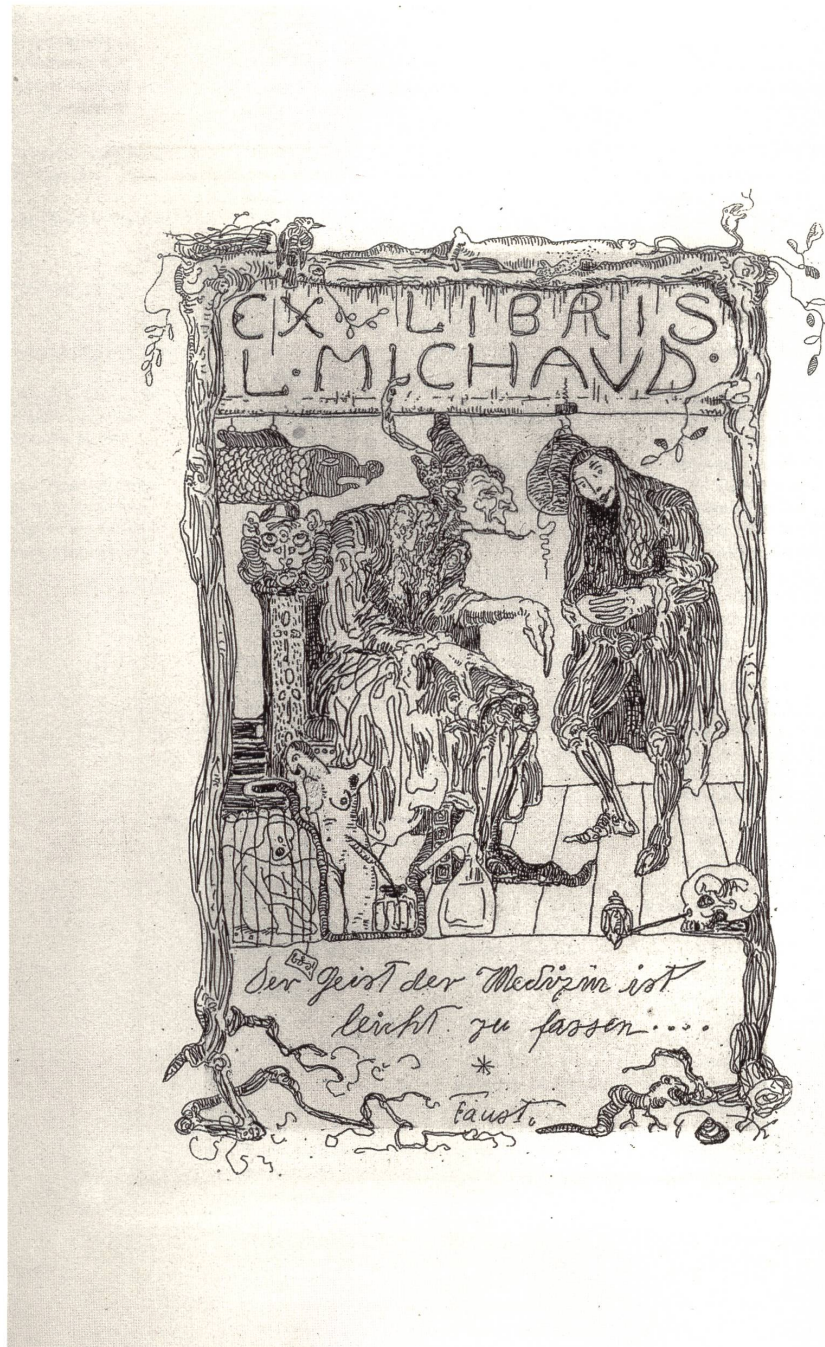 EX LIBRIS
L·MICHAVD·
Der Geist der Medizin ist
leicht zu fassen....
*
Faust.